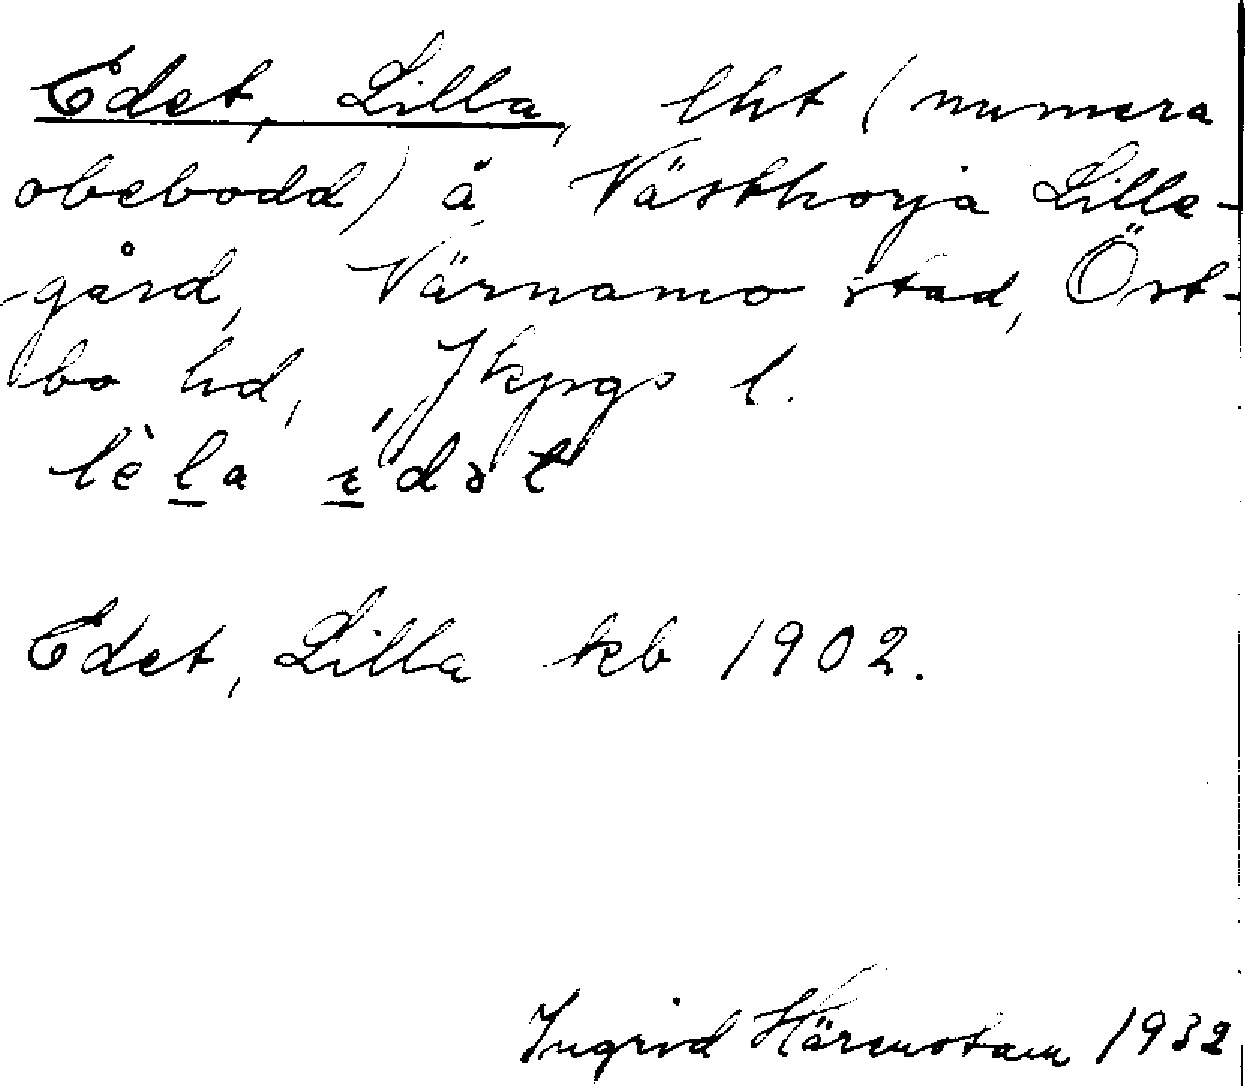 Edet, Lilla, lht (numera
obebodd) å Västhorja Lilla-
gård, Värnamo stad, Öst-
bo hd, Jkpgs l.
lèla édət
Edet, Lilla kb 1902.
Ingrid Härenstam 1932